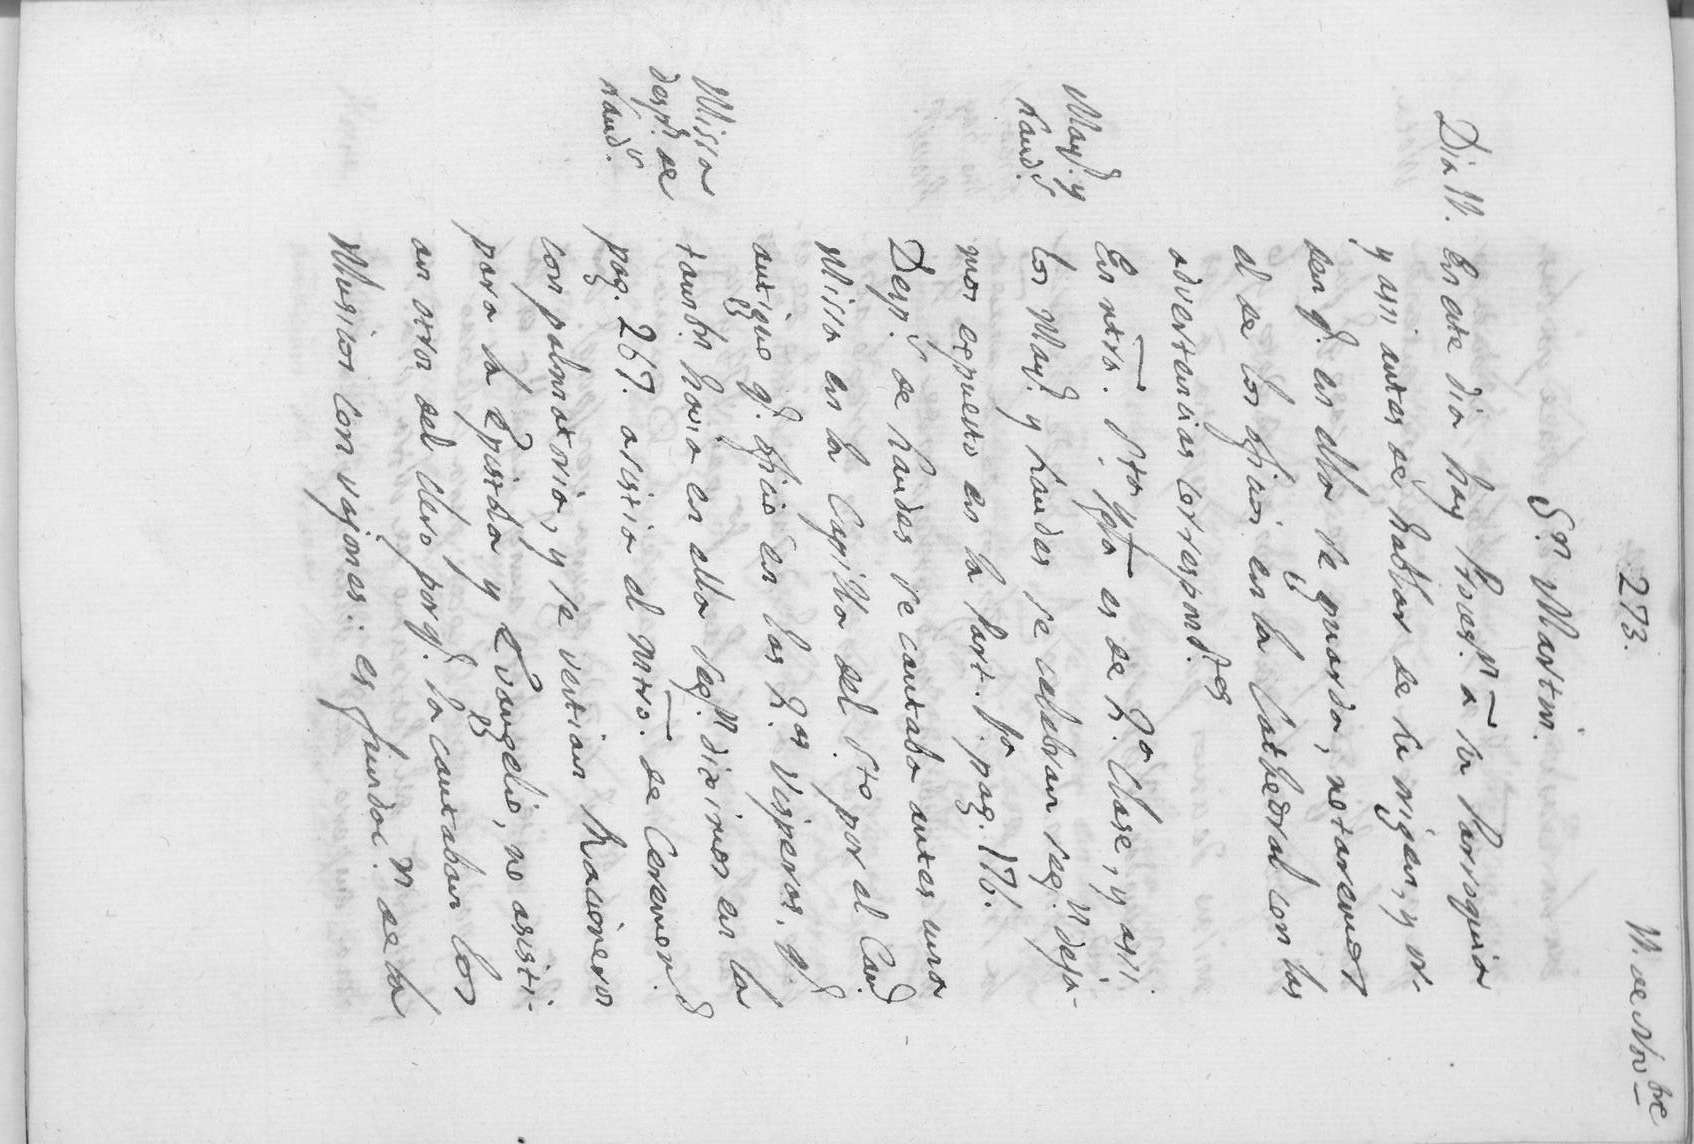 273.
11. de Nov.bre
Sn. Martin.
Dia 11. En este dia hay Proces.n a la Parroquia
y assi antes de hablar de su origen, y or-
den q.e en ella se guarda, notaremos
el de los oficios en la Cathedral con las
advertencias correspond.tes
Mayt.s y
Laud.s
En ntra. Sta. Yga. es de 2.a Clase, y assi
los Mayt.s y Laudes se celebran seg.n deja-
mos expuesto en la Part. 1.a pag. 176.
Missa
desp.s de
Laud.s
Desp.s de Laudes se cantaba antes una
Missa en la Capilla del Sto. por el Can.
antiguo q.e oficio en las 2.as Visperas, q.e
tambn. havia en ella seg.n diximos en la
pag. 267. assistia el Mtro. de Ceremon.s
con palmatoria, y se vestian Racioneros
para la Epistola y Evangelio, no assisti-
an otros del Clero porq.e la cantaban los
Musicos con vajones: es fundac.n de la